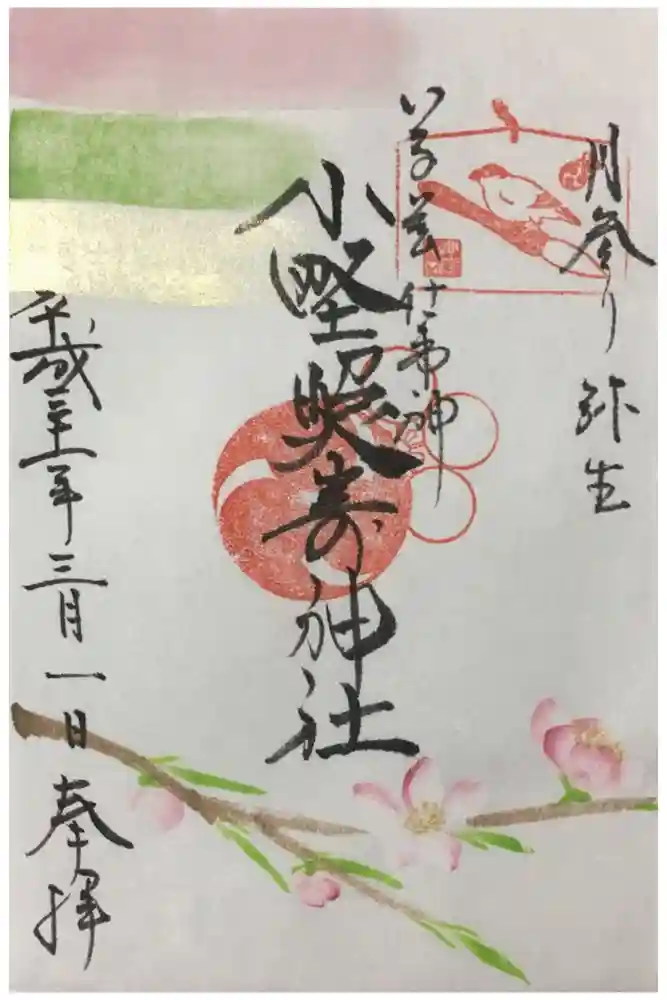 月参り 弥生
芸 仕事神
小野照嵜神社
平成三十一年三月一日 奉拝